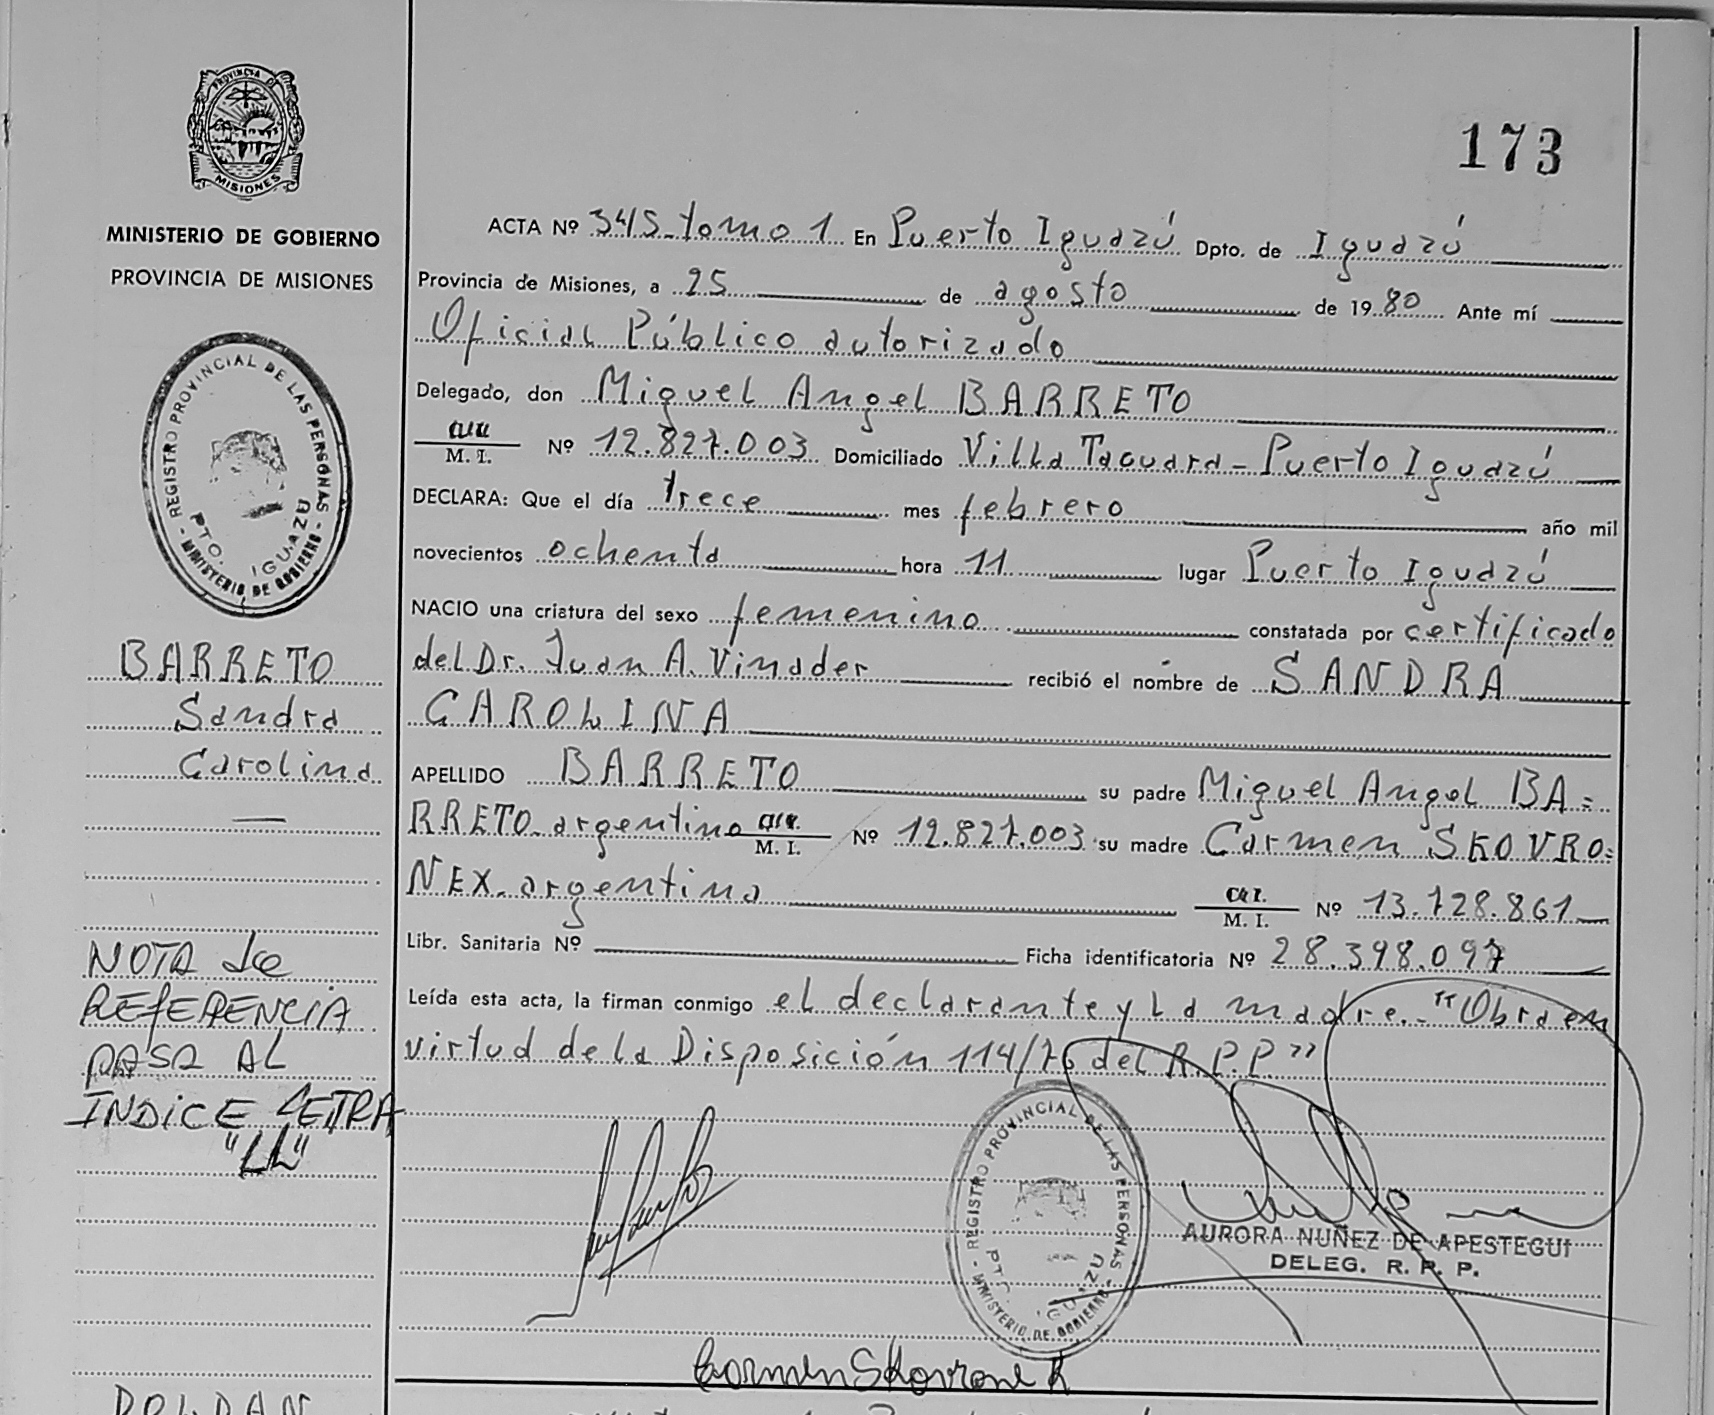 PROVINCIA DE
MISIONES
MINISTERIO DE GOBIERNO
PROVINCIA DE MISIONES
REGISTRO PROVINCIAL DE LAS PERSONAS
PTO. IGUAZU
- MINISTERIO DE GOBIERNO -
BARRETO
Sandra
Carolina
NOTA de
REFERENCIA
PASA AL
INDICE LETRA
"LL"
ROLDAN
173
ACTA Nº 345 tomo 1 En Puerto Iguazú Dpto. de Iguazú
Provincia de Misiones, a 25 de agosto de 1980 Ante mí
Oficial Público autorizado
Delegado, don Miguel Angel BARRETO
M. I. Nº 12.827.003 Domiciliado Villa Tacuara - Puerto Iguazú
DECLARA: Que el día trece mes febrero año mil
novecientos ochenta hora 11 lugar Puerto Iguazú
NACIO una criatura del sexo femenino constatada por certificado
del Dr. Juan A. Vinader recibió el nombre de SANDRA
CAROLINA
APELLIDO BARRETO su padre Miguel Angel BA=
RRETO argentino M. I. Nº 12.827.003 su madre Carmen SKOVRO=
NEX argentina M. I. Nº 13.728.861
Libr. Sanitaria Nº Ficha identificatoria Nº 28.398.097
Leída esta acta, la firman conmigo el declarante y la madre.- "Obra en
virtud de la Disposición 114/76 del R.P.P"
REGISTRO PROVINCIAL DE LAS PERSONAS
- MINISTERIO DE GOBIERNO -
AURORA NUÑEZ DE APESTEGUI
DELEG. R. R. P.
Carmen Skovronek